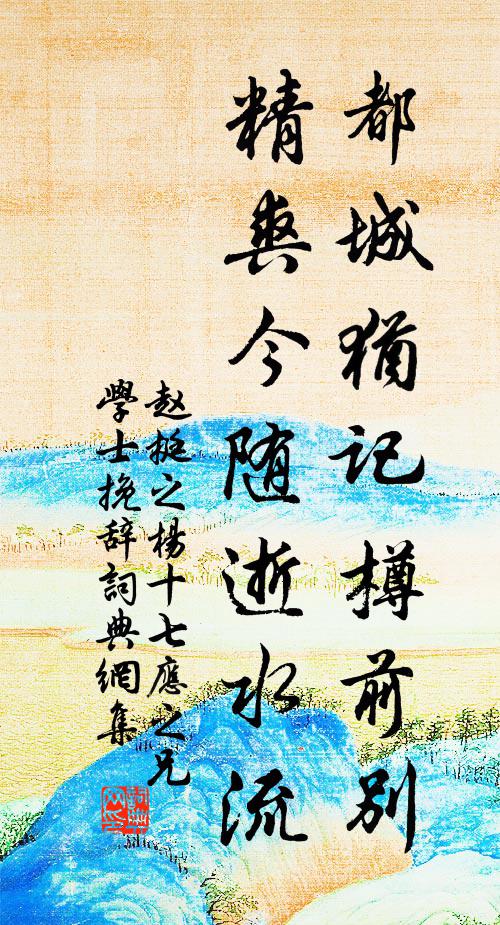 都城犹记樽前别
精爽今随逝水流
赵挺之杨十七應之兄
學士挽辞詞典網集